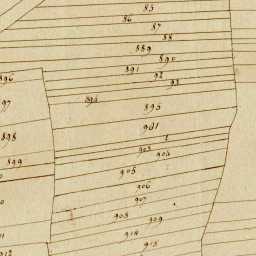 85
86
87
88
889
890
891
92
93
896
894
97
895
901
898
2
903
904
899
905
906
907
908
909
914
915
912